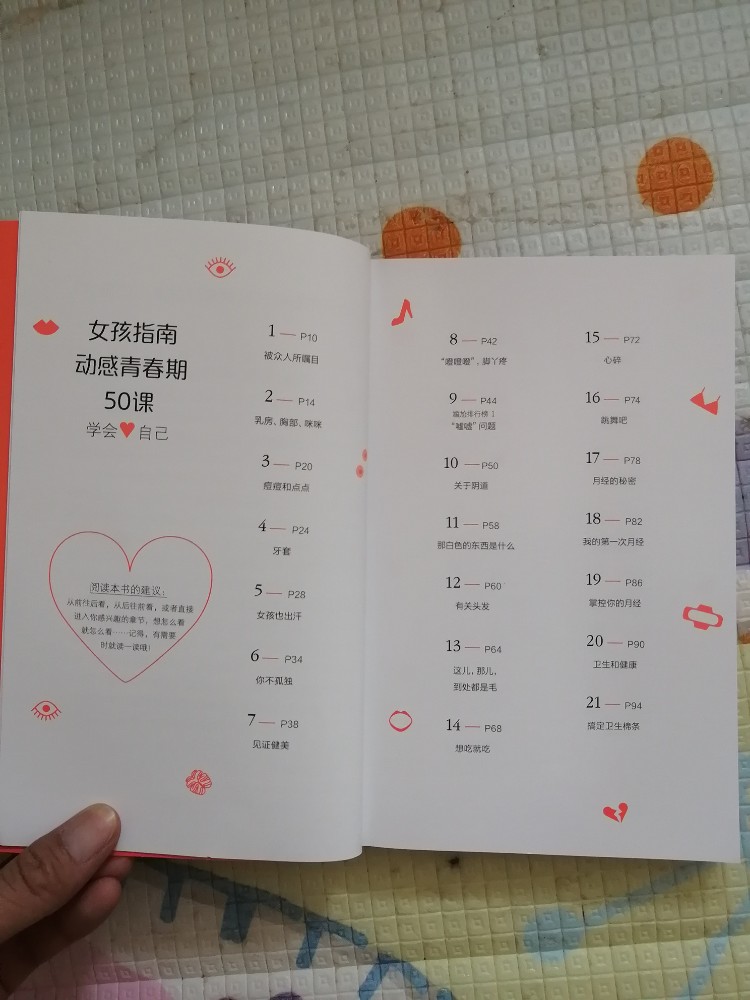 女孩指南
动感青春期
50课
学会♥自己
阅读本书的建议：
从前往后看，从后往前看，或者直接
进入你感兴趣的章节，想怎么看
就怎么看……记得，有需要
时就读一读哦！
1 — P10
被众人所瞩目
2 — P14
乳房、胸部、咪咪
3 — P20
痘痘和点点
4 — P24
牙套
5 — P28
女孩也出汗
6 — P34
你不孤独
7 — P38
见证健美
8 — P42
“噔噔噔”，脚丫疼
9 — P44
尴尬排行榜 1
“嘘嘘”问题
10 — P50
关于阴道
11 — P58
那白色的东西是什么
12 — P60
有关头发
13 — P64
这儿，那儿，
到处都是毛
14 — P68
想吃就吃
15 — P72
心碎
16 — P74
跳舞吧
17 — P78
月经的秘密
18 — P82
我的第一次月经
19 — P86
掌控你的月经
20 — P90
卫生和健康
21 — P94
搞定卫生棉条